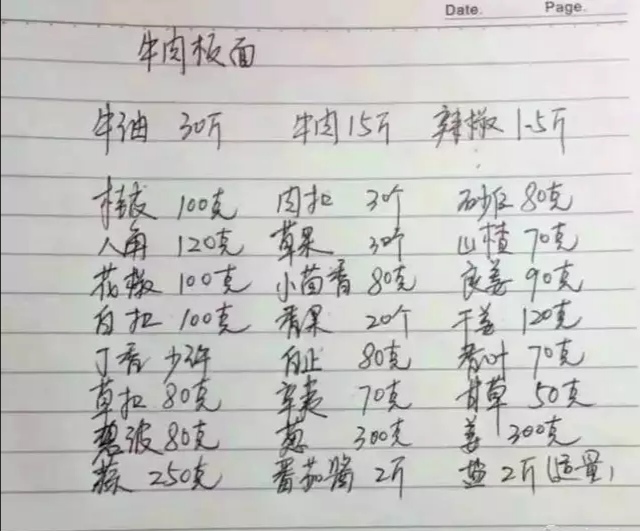 Date. Page.
牛肉板面
牛油 30斤 牛肉 15斤 辣椒 1.5斤
桂皮 100克 肉扣 3个 砂仁 80克
八角 120克 草果 30个 山楂 70克
花椒 100克 小茴香 80克 良姜 90克
白扣 100克 香果 20个 干姜 120克
丁香 少许 白止 80克 香叶 70克
草扣 80克 辛夷 70克 甘草 50克
波 80克 葱 300克 姜 300克
蒜 250克 番茄酱 2斤 盐 2斤(适量)